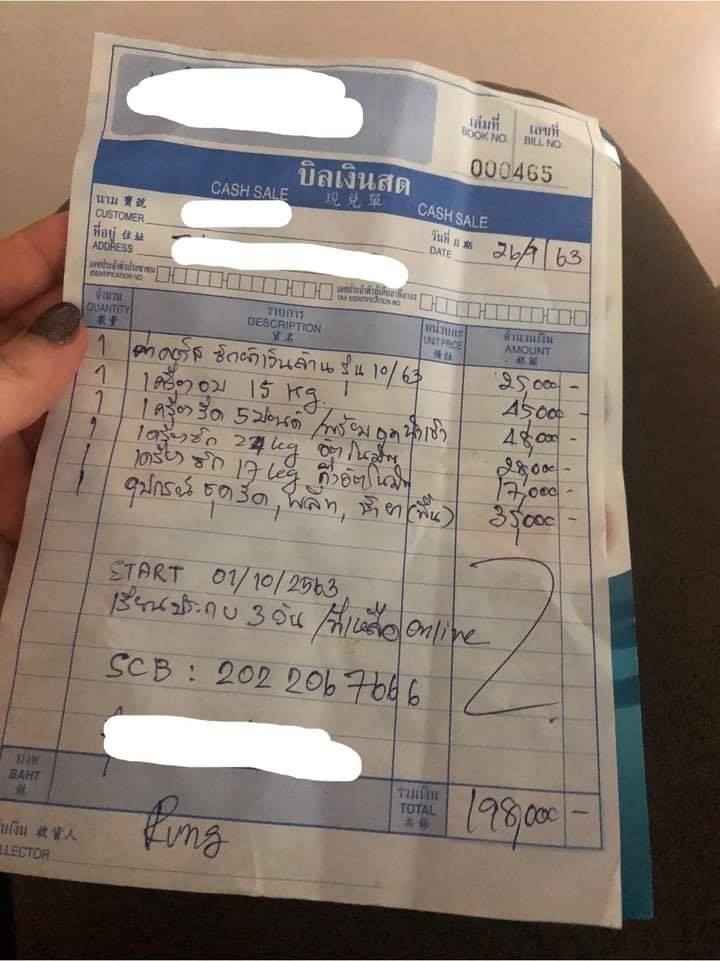 เล่มที่ เลขที่
BOOK NO. BILL NO.
000465
บิลเงินสด
CASH SALE 現兑單 CASH SALE
นาม 寶號
CUSTOMER
วันที่ 日期
DATE 26/9/63
ที่อยู่ 住址
ADDRESS
เลขประจำตัวประชาชน
IDENTIFICATION NO.
เลขประจำตัวผู้เสียภาษีอากร
TAX IDENTIFICATION NO.
จำนวน รายการ หน่วยละ จำนวนเงิน
QUANTITY DESCRIPTION UNIT PRICE AMOUNT
數量 貨名 銀額
1 ค่าคอร์ส ซักผ้าเงินล้าน รุ่น 10/63 25,000 -
1 เครื่องอบ 15 kg. 45,000 -
1 เครื่องรีด 5 /พร้อม 48,000 -
1 เครื่องซัก kg อัตโนมัติ 28,000 -
1 เครื่องซัก 17 kg กึ่งอัตโนมัติ 17,000 -
1 อุปกรณ์ ชุดรีด, น้ำยา (พื้น) 35,000 -
START 01/10/2563
เรียนประกบ 3 วัน /ที่เหลือ online
SCB : 202 206 7666
บาท
BAHT
รวมเงิน
TOTAL 198,000 -
共銀
รับเงิน 收貨人
LLECTOR
Rung